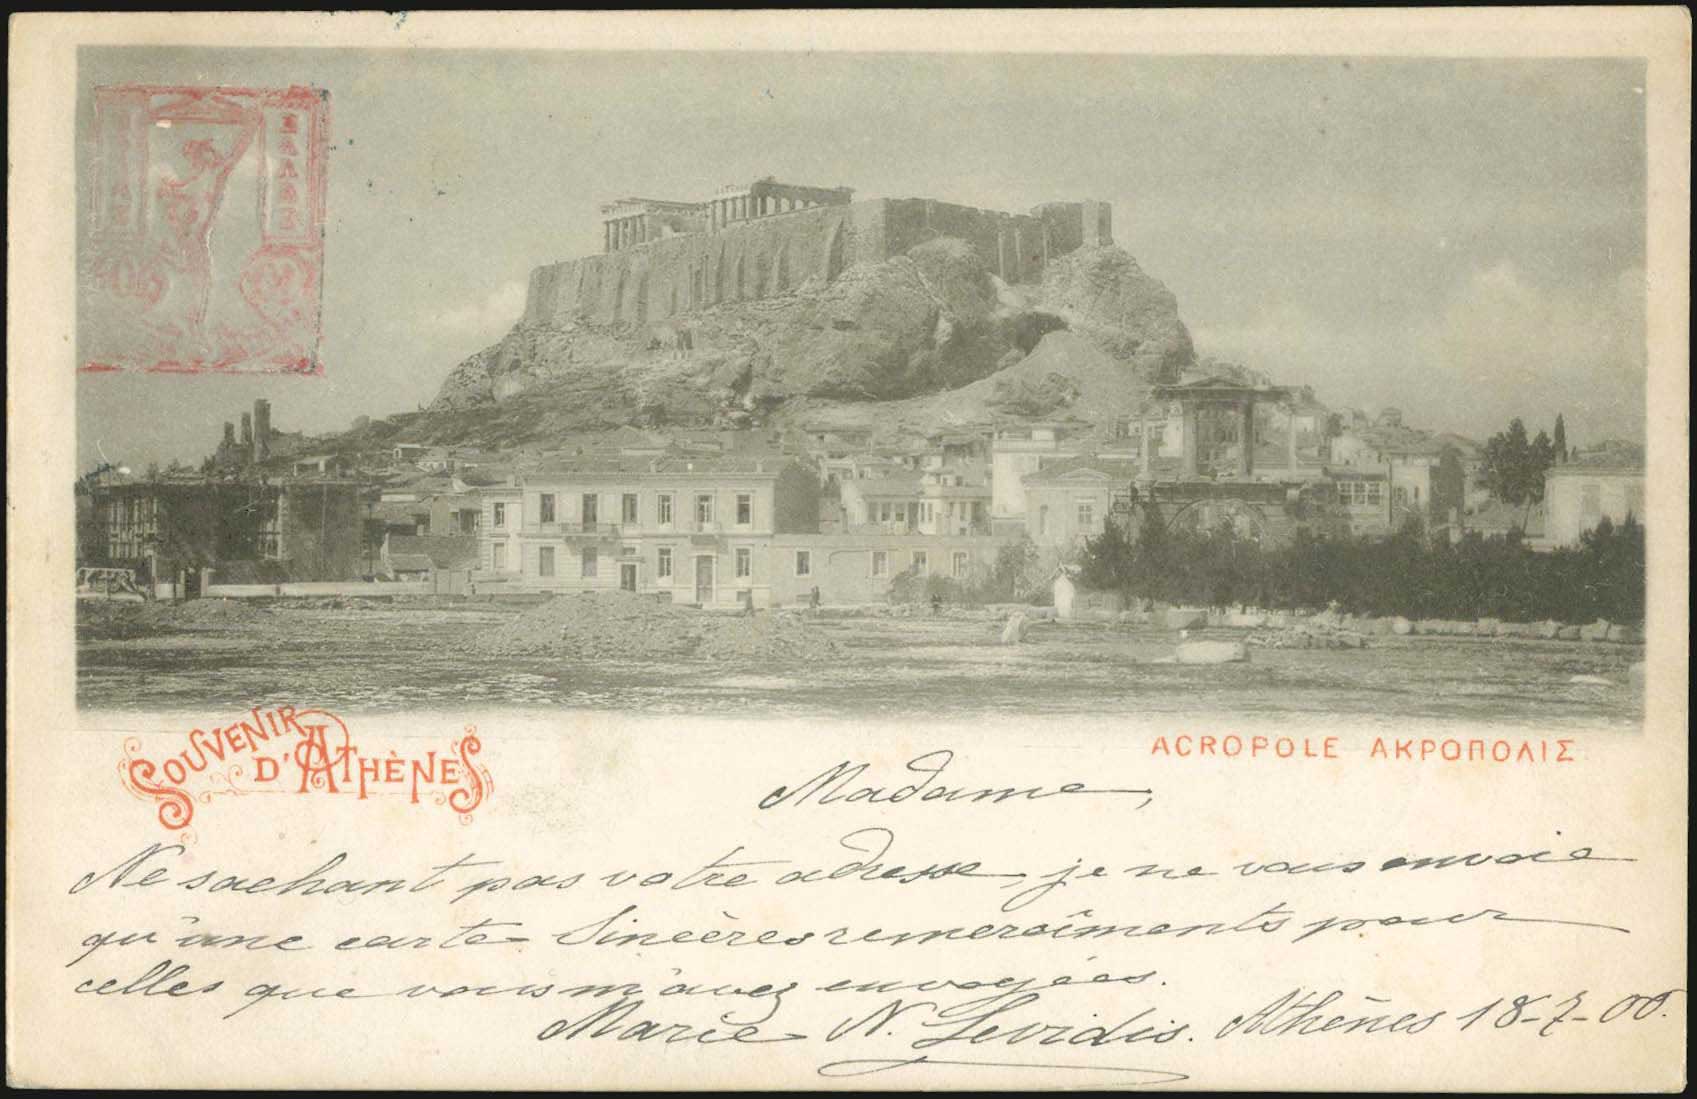 ΕΛΛΑΣ
SOUVENIR
D'ATHÈNES
ACROPOLE ΑΚΡΟΠΟΛΙΣ
Madame,
Ne sachant pas votre adresse, je ne vous envoie
qu'une carte. Sincères remercîments pour
celles que vous m'avez envoyées.
Marie N. Levidis. Athènes 18-7-00.